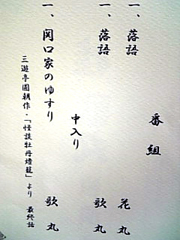 番組
一、落語 花丸
一、落語 歌丸
中入り
一、関口家のゆすり 歌丸
三遊亭圓朝作・「怪談牡丹燈籠」より 最終話